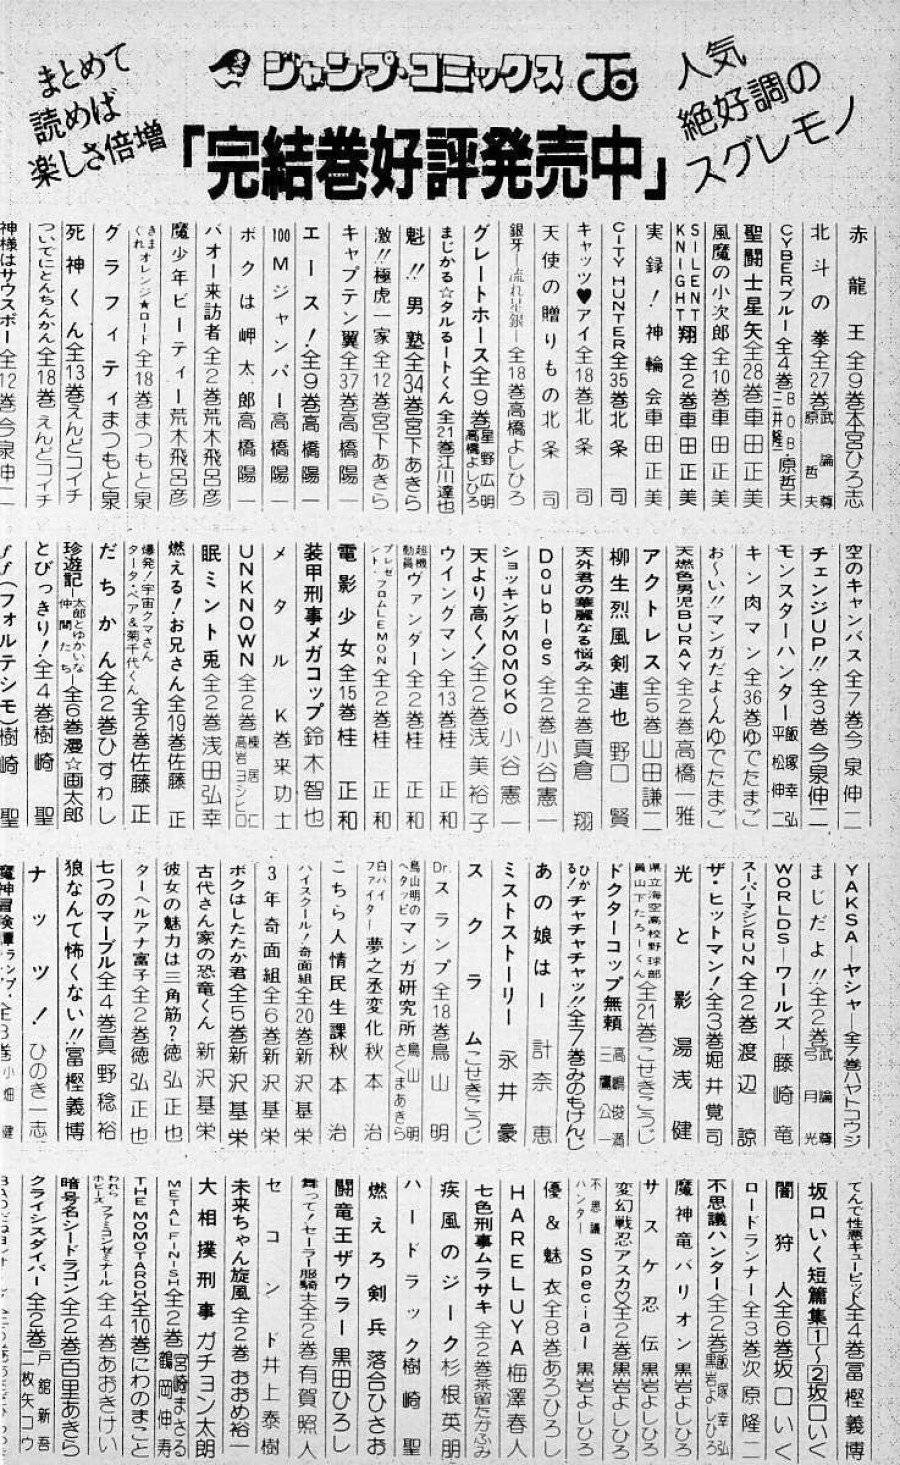 人気
絶好調の
スグレモノ
ジャンプ・コミックス
まとめて
読めば
楽しさ倍増
「完結巻好評発売中」
赤龍王全9巻本宮ひろ志
北斗の拳全27巻武論尊 原哲夫
CYBERブルー全4巻BOB・原哲夫 二井隆一
聖闘士星矢全28巻車田正美
風魔の小次郎全10巻車田正美
SILENT KNIGHT翔全2巻車田正美
実録!神輪会車田正美
CITY HUNTER全35巻北条司
キャッツ♥アイ全18巻北条司
天使の贈りもの北条司
銀牙―流れ星銀―全18巻高橋よしひろ
グレートホース全9巻星野広明 高橋よしひろ
まじかる☆タルるートくん全21巻江川達也
魁!!男塾全34巻宮下あきら
激!!極虎一家全12巻宮下あきら
キャプテン翼全37巻高橋陽一
エース!全9巻高橋陽一
100Mジャンパー高橋陽一
ボクは岬太郎高橋陽一
バオー来訪者全2巻荒木飛呂彦
魔少年ビーティー荒木飛呂彦
きまぐれオレンジ★ロード全18巻まつもと泉
グラフィティまつもと泉
死神くん全13巻えんどコイチ
ついでにとんちんかん全18巻えんどコイチ
神様はサウスポー全12巻今泉伸二
空のキャンバス全7巻今泉伸二
チェンジUP!!全3巻今泉伸二
モンスターハンター飯塚幸弘 平松伸二
キン肉マン全36巻ゆでたまご
お〜い!!マンガだよ〜んゆでたまご
天燃色男児BURAY全2巻高橋一雅
アクトレス全5巻山田謙二
柳生烈風剣連也野口賢
天外君の華麗なる悩み全2巻真倉翔
Doubles全2巻小谷憲一
ショッキングMOMOKO小谷憲一
天より高く!全2巻浅美裕子
ウイングマン全13巻桂正和
超機動員ヴァンダー全2巻桂正和
プレゼント・フロムLEMON全2巻桂正和
電影少女全15巻桂正和
装甲刑事メガコップ鈴木智也
メタルK巻来功士
UNKNOWN全2巻棟居仁 高岩ヨシヒロ
眠ミント兎全2巻浅田弘幸
燃える!お兄さん全19巻佐藤正
爆発!宇宙クマさんタータ・ベア&菊千代くん全2巻佐藤正
だちかん全2巻ひすわし
珍遊記―太郎とゆかいな仲間たち―全6巻漫☆画太郎
とびっきり!全4巻樹崎聖
ff(フォルテシモ)樹崎聖
YAKSA―ヤシャ―全7巻ハヤトコウジ
まじだよ!!全2巻武論尊 弓月光
WORLDS―ワールズ―藤崎竜
スーパーマシンRUN全2巻渡辺諒
ザ・ヒットマン!全3巻堀井覚司
光と影湯浅健
県立海空高校野球部員山下たろーくん全21巻こせきこうじ
ドクターコップ無頼高嶋俊満 三鷹公一
ひかる!チャチャチャッ!!全7巻みのもけんじ
あの娘は―計奈恵
ミストストーリー永井豪
スクラムこせきこうじ
Dr.スランプ全18巻鳥山明
鳥山明のヘタッピマンガ研究所さくまあきら 鳥山明
白バイファイター夢之丞変化秋本治
こちら人情民生課秋本治
ハイスクール!奇面組全20巻新沢基栄
3年奇面組全6巻新沢基栄
ボクはしたたか君全5巻新沢基栄
古代さん家の恐竜くん新沢基栄
彼女の魅力は三角筋?徳弘正也
ターヘルアナ富子全2巻徳弘正也
七つのマーブル全4巻真野稔裕
狼なんて怖くない!!冨樫義博
ナッツ!ひのき一志
魔神冒険譚ランプ・全3巻小畑健
てんで性悪キューピッド全4巻冨樫義博
坂口いく短篇集1〜2坂口いく
闇狩人全6巻坂口いく
ロードランナー全3巻次原隆二
不思議ハンター全2巻飯塚幸弘 黒岩よしひろ
魔神竜バリオン黒岩よしひろ
サスケ忍伝黒岩よしひろ
変幻戦忍アスカ♡全2巻黒岩よしひろ
不思議ハンターSpecial黒岩よしひろ
優&魅衣全8巻あろひろし
HARELUYA梅澤春人
七色刑事ムラサキ全2巻茶留たかふみ
疾風のジーク杉根英朋
ハードラック樹崎聖
燃えろ剣兵落合ひさお
闘竜王ザウラー黒田ひろし
舞って!セーラー服騎士全2巻有賀照人
セコンド井上泰樹
未来ちゃん旋風全2巻おおめ裕一
大相撲刑事ガチョン太朗
METAL FINISH全2巻宮崎まさる 鶴岡伸寿
THE MOMOTAROH全10巻にわのまこと
われらホビーズファミコンゼミナール全4巻あおきけい
暗号名シードラゴン全2巻百里あきら
クライシスダイバー全2巻戸舘新吾 二枚矢コウ